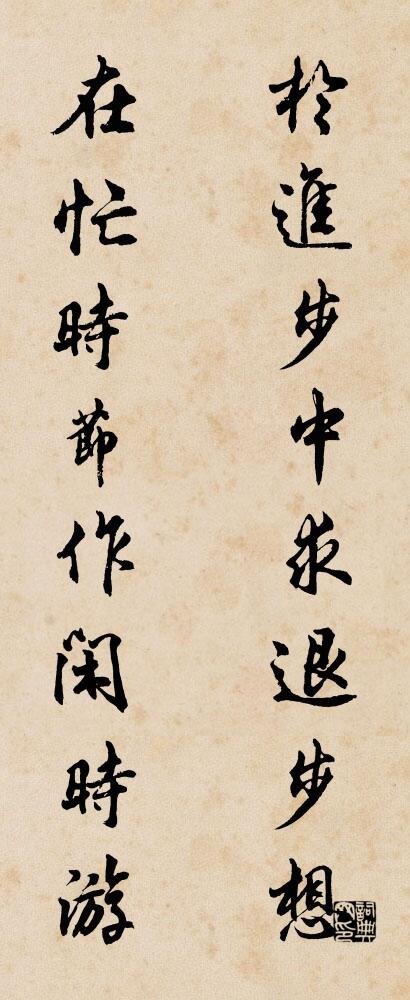 於進步中求退步想
在忙時節作閑時游